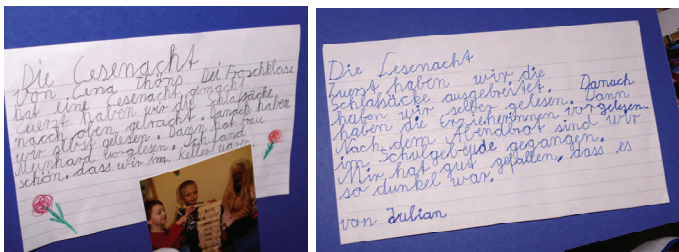 Die Lesenacht
Von Lena Thöns Dei Froschklase
hat eine Lesenacht gemacht.
Zuerst haben wir die Schlafsäcke
nach oben gebracht. Danach haben
wir selbst gelesen. Dann hat Frau
Meinhard vorgelesen. Ich fand
schön, dass wir im Keller waren.
Die Lesenacht
Zuerst haben wir die
Schlafsäcke ausgebreitet. Danach
haben wir selber gelesen. Dann
haben die Erzieherinnen vorgelesen.
Nach dem Abendbrot sind wir
im Schulgebeude gegangen.
Mir hat gut gefallen, dass es
so dunkel war.
von Julian